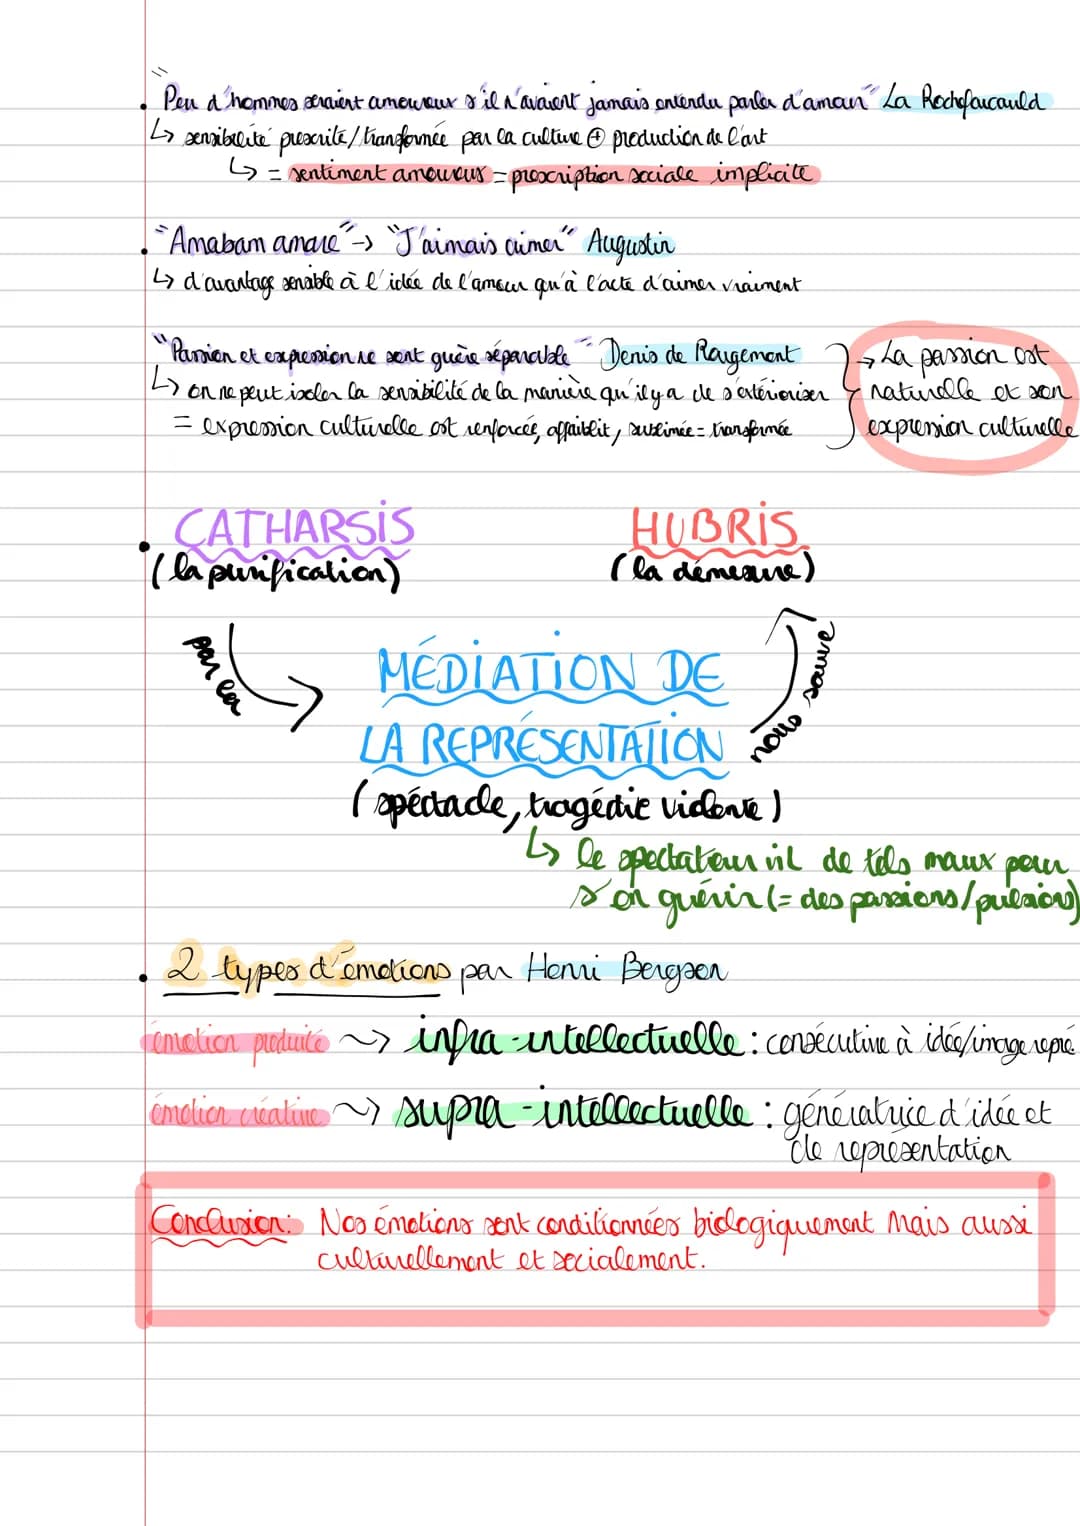 "Peu d'hommes seraient amoureux s'il n'avaient jamais entendu parler d'amour" La Rochefaucauld
↳ sensibilité prescrite/transformée par la culture ⊕ production de l'art
↳ = sentiment amoureux = prescription sociale implicite
"Amabam amare" → "J'aimais aimer" Augustin
↳ d'avantage sensible à l'idée de l'amour qu'à l'acte d'aimer vraiment
"Passion et expression ne sont guère séparable" Denis de Rougemont
↳ on ne peut isoler la sensibilité de la manière qu'il y a de s'extérioriser
= expression culturelle est renforcée, affaiblit, sublimée = transformée
→ La passion est
naturelle et son
expression culturelle
CATHARSIS
(la purification)
HUBRIS
(la démesure)
par la
MÉDIATION DE
LA REPRÉSENTATION
nous sauve
(spéctacle, tragédie violente)
↳ le spectateur vit de tels maux pour
s'en guérir (= des passions/pulsions)
2 types d'émotions par Henri Bergson
émotion produite ~> infra-intellectuelle : consécutive à idée/image repré
émotion créative ~> supra-intellectuelle : génératrice d'idée et
de représentation
Conclusion: Nos émotions sont conditionnées biologiquement mais aussi
culturellement et socialement.